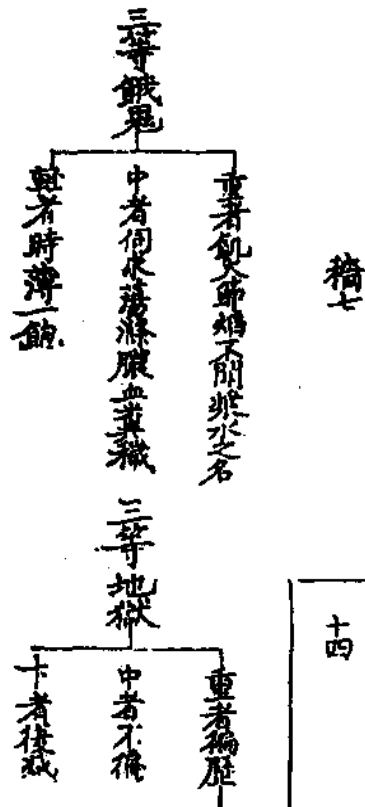 七
十四
三等餓鬼
重者飢火節焰不聞漿水之名
中者伺求蕩滌膿血糞穢
輕者時薄一飽
三等地獄
重者徧歷
中者不徧
下者復減